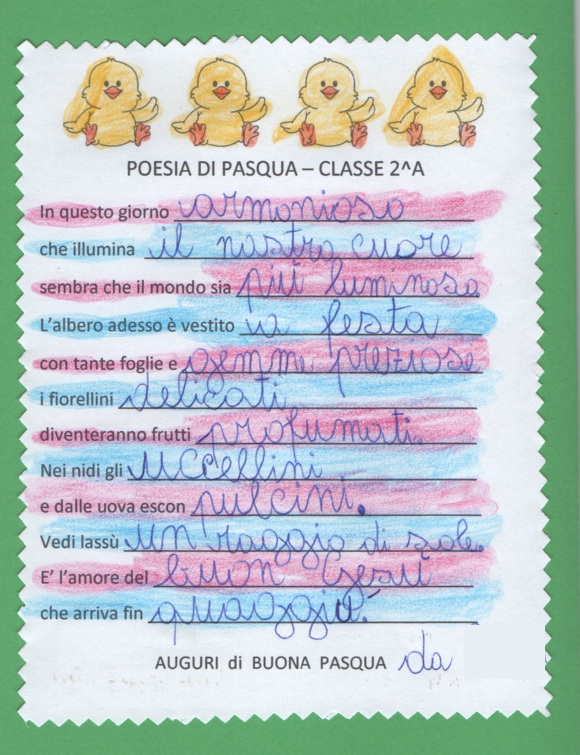 POESIA DI PASQUA – CLASSE 2^A
In questo giorno armonioso
che illumina il nostro cuore
sembra che il mondo sia più luminoso
L'albero adesso è vestito in festa
con tante foglie e gemme preziose
i fiorellini delicati
diventeranno frutti profumati.
Nei nidi gli uccellini
e dalle uova escon pulcini.
Vedi lassù un raggio di sole.
E' l'amore del buon Gesù
che arriva fin quaggiù.
AUGURI di BUONA PASQUA da